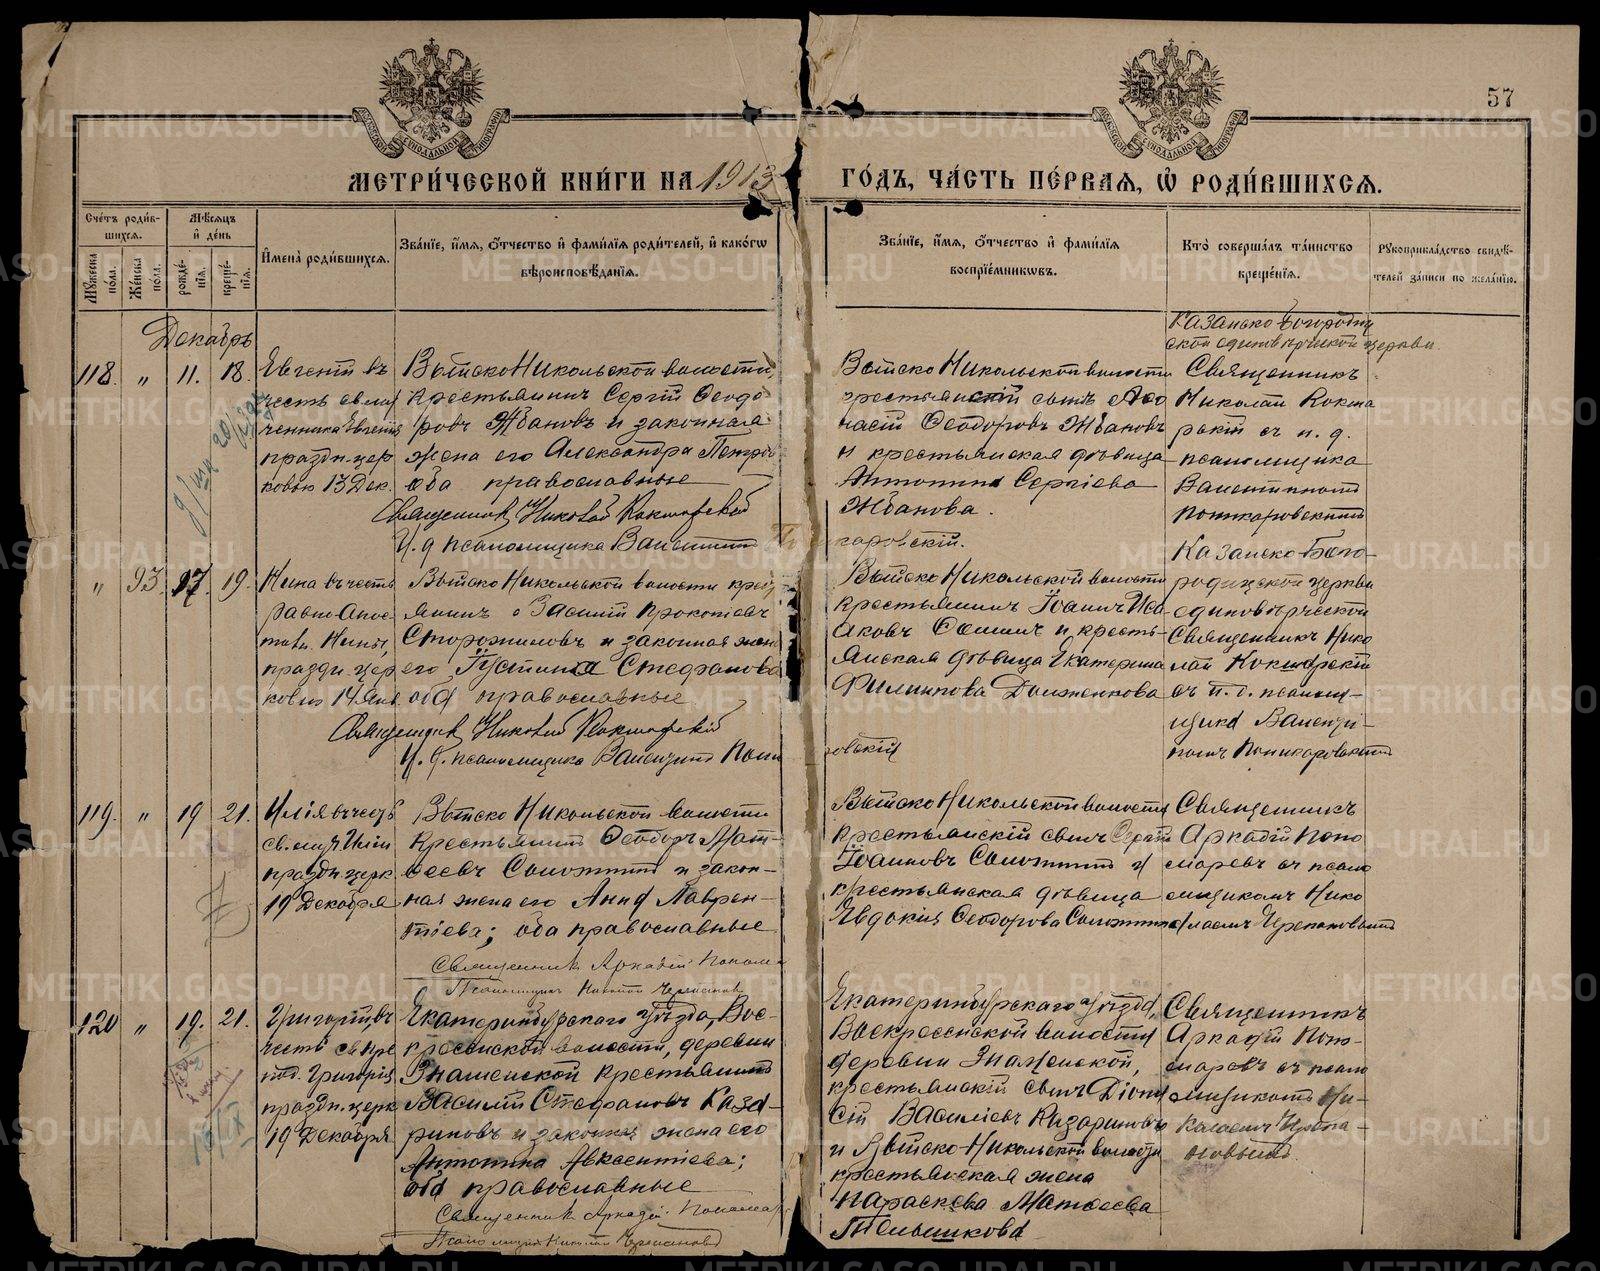 57
МЕТРИ́ЧЕСКОЙ КНИ́ГИ НА 1913 ГО́ДЪ, ЧА́СТЬ ПЕ́РВАЯ, Ѡ҆ РОДИ́ВШИХСѦ.
Сче́тъ роди́в-
шихсѧ.
Мѣ́сѧцъ
и҆ де́нь
Мꙋ́жеска
по́ла.
Же́нска
по́ла.
рожде́-
нїѧ.
креще́-
нїѧ.
И҆мена̀ роди́вшихсѧ.
Зва́нїе, и҆́мѧ, ѻ҆́тчество и҆ фами́лїѧ роди́телей, и҆ како́гѡ
вѣроисповѣ́данїѧ.
Зва́нїе, и҆́мѧ, ѻ҆́тчество и҆ фами́лїѧ
воспрїе́мникѡвъ.
Кто̀ соверша́лъ та́инство
креще́нїѧ.
Рꙋкоприкла́дство свидѣ́-
телей за́писи по жела́нїю.
Декабрь
118. " 11. 18.
Евгеній въ
честь св. муч
ченника Евгенія
праздн. цер
ковью 13 Дек.
Выйско Никольской волости,
крестьянинъ Сергій Ѳеодо
ровъ Жбановъ и законная
жена его Александра Петро
оба православные
Священник Николай Кокшарский
И. д псаломщика Валентинъ
Выйско Никольской волости
крестьянскій сынъ Аѳо
насій Ѳеодоровъ Жбановъ
и крестьянская дѣвица
Антонина Сергіева
Жбанова.
каровскій.
Казанско-Богородиц
ской единовѣрческой церкви.
Священникъ
Николай Кокша
рскій съ и. д.
псаломщика
Валентиномъ
Поникаровскимъ
" 93. 17. 19.
Нина въ честь
Равно Апос-
толн. Нины,
праздн. цер
ковью 14 Янв.
Выйско Никольской волости крест
янинъ Василій Прокопіевъ
Сторожиловъ и законная жена
его Іустина Стефанова
оба православные
Священник Николай Кокшарскій
И. д. псаломщика Валентинъ Пони
Выйско Никольской волости
крестьянинъ Іоаннъ Иса-
аковъ и кресть-
янская дѣвица Екатерина
Филиппова Долженкова
ровскій
Казанско-Бого-
родицской церкви
единовѣрческой
Священникъ Нико
лай Кокшарскій
съ и. д. псалом-
щика Валенти-
номъ Поникаровскимъ
119. " 19 21.
Илія въ честь
св. муч Иліи
праздн. церк
19 Декабря
Выйско Никольской волости
крестьянинъ Ѳеодоръ Мат-
ѳеевъ и закон-
ная жена его Анна Лаврен-
тіева; оба православные
Священник Аркадій Понома
Псаломщикъ Николай Черепановъ
Выйско Никольской волости
крестьянскій сынъ Сергій
Іоанновъ и
крестьянская дѣвица
Евдокия Ѳеодорова
Священникъ
Аркадій Поно
маревъ съ псало
мщикомъ Нико
лаемъ Черепановымъ
120 " 19. 21.
Григорій въ
честь св. пре
под. Григорія
праздн. церк
19 Декабря
Екатеринбургскаго уѣзда, Вос-
кресенской волости, деревни
Знаменской крестьянинъ
Василій Стефановъ Каза-
риновъ и законная жена его
Антонина Авксентіева;
оба православные
Священник Аркадій Пономар
Псаломщикъ Николай Черепановъ
Екатеринбургскаго уѣзда,
Воскресенской волости
деревни Знаменской,
крестьянскій сынъ Діони
сій Василіевъ Казариновъ
и Выйско-Никольской волости
крестьянская жена
Параскева Матѳеева
Тельшкова
Священникъ
Аркадій Поно-
маревъ съ псало
мщикомъ Ни-
колаемъ Черепа-
новымъ.
METRIKI.GASO-URAL.RU